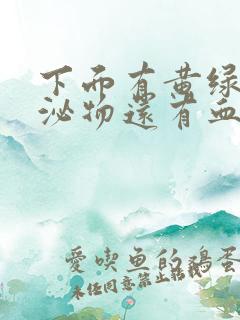 下面有黄绿
泌物还有血
愛喫鱼的鸡蛋
未经同意禁止转载